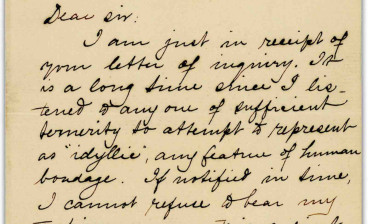 Dear sir:
I am just in receipt of
your letter of inquiry. It
is a long time since I lis-
tened to any one of sufficient
temerity to attempt to represent
as "idyllic", any feature of human
bondage. If notified in time,
I cannot refuse to bear my